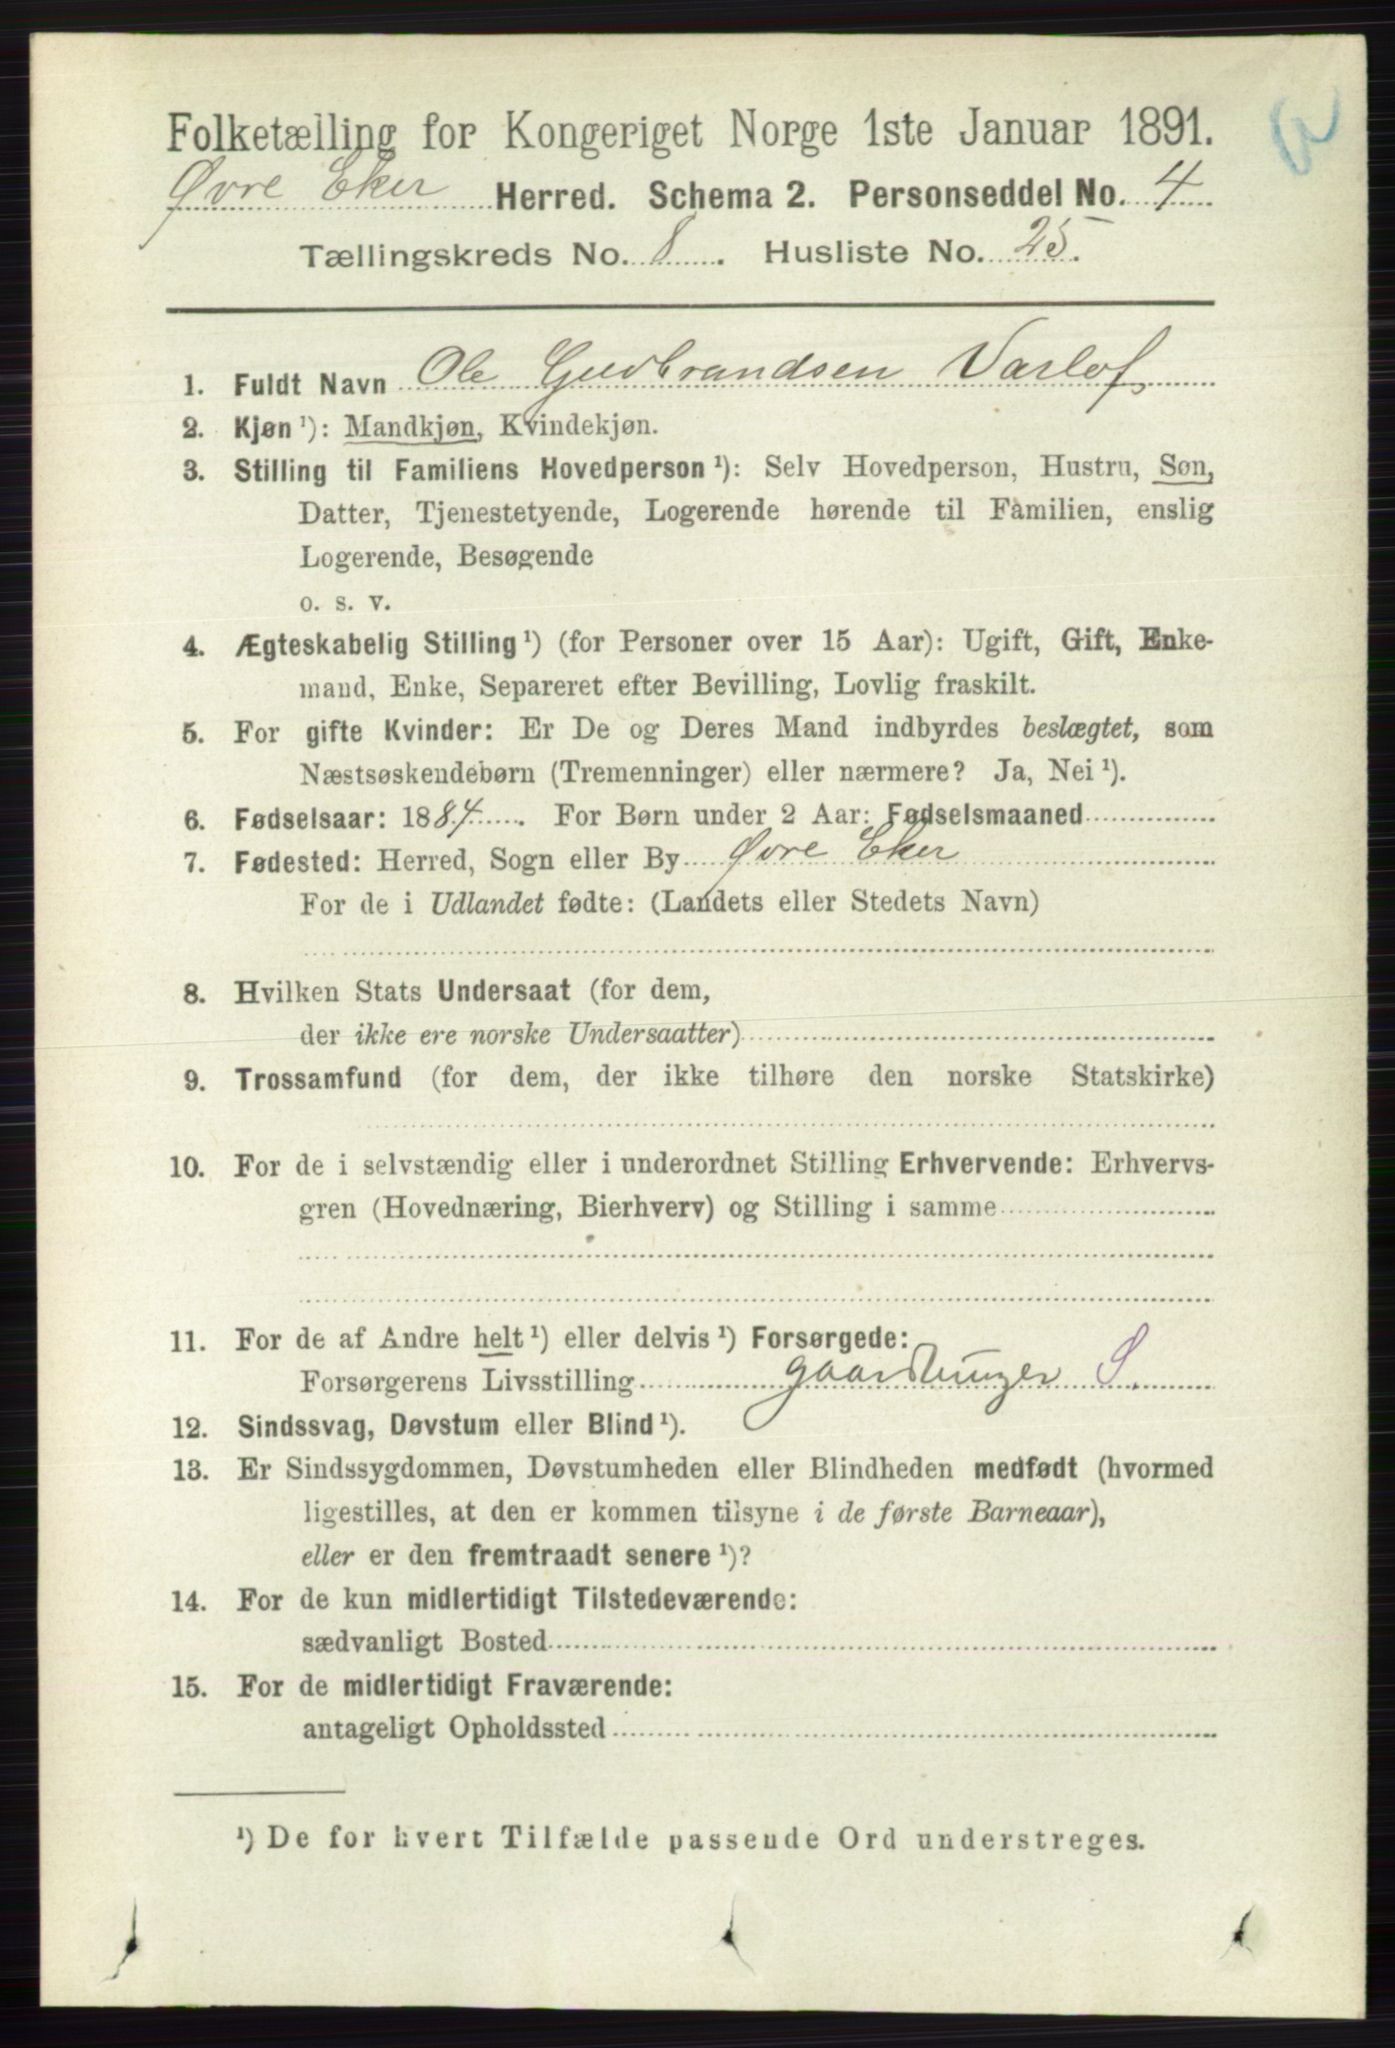 Folketælling for Kongeriget Norge 1ste Januar 1891.
Øvre Eker Herred. Schema 2. Personseddel No. 4
Tællingskreds No. 8. Husliste No. 25.
1. Fuldt Navn Ole Gudbrandsen Varlof
2. Kjøn ¹): Mandkjøn, Kvindekjøn.
3. Stilling til Familiens Hovedperson ¹): Selv Hovedperson, Hustru, Søn,
Datter, Tjenestetyende, Logerende hørende til Familien, enslig
Logerende, Besøgende
o. s. v.
4. Ægteskabelig Stilling ¹) (for Personer over 15 Aar): Ugift, Gift, Enke-
mand, Enke, Separeret efter Bevilling, Lovlig fraskilt.
5. For gifte Kvinder: Er De og Deres Mand indbyrdes beslægtet, som
Næstsøskendebørn (Tremenninger) eller nærmere? Ja, Nei ¹).
6. Fødselsaar: 1884. For Børn under 2 Aar: Fødselsmaaned
7. Fødested: Herred, Sogn eller By Øvre Eker
For de i Udlandet fødte: (Landets eller Stedets Navn)
8. Hvilken Stats Undersaat (for dem,
der ikke ere norske Undersaatter)
9. Trossamfund (for dem, der ikke tilhøre den norske Statskirke)
10. For de i selvstændig eller i underordnet Stilling Erhvervende: Erhvervs-
gren (Hovednæring, Bierhverv) og Stilling i samme
11. For de af Andre helt ¹) eller delvis ¹) Forsørgede:
Forsørgerens Livsstilling gaardbruger S.
12. Sindssvag, Døvstum eller Blind ¹).
13. Er Sindssygdommen, Døvstumheden eller Blindheden medfødt (hvormed
ligestilles, at den er kommen tilsyne i de første Barneaar),
eller er den fremtraadt senere ¹)?
14. For de kun midlertidigt Tilstedeværende:
sædvanligt Bosted
15. For de midlertidigt Fraværende:
antageligt Opholdssted
¹) De for hvert Tilfælde passende Ord understreges.